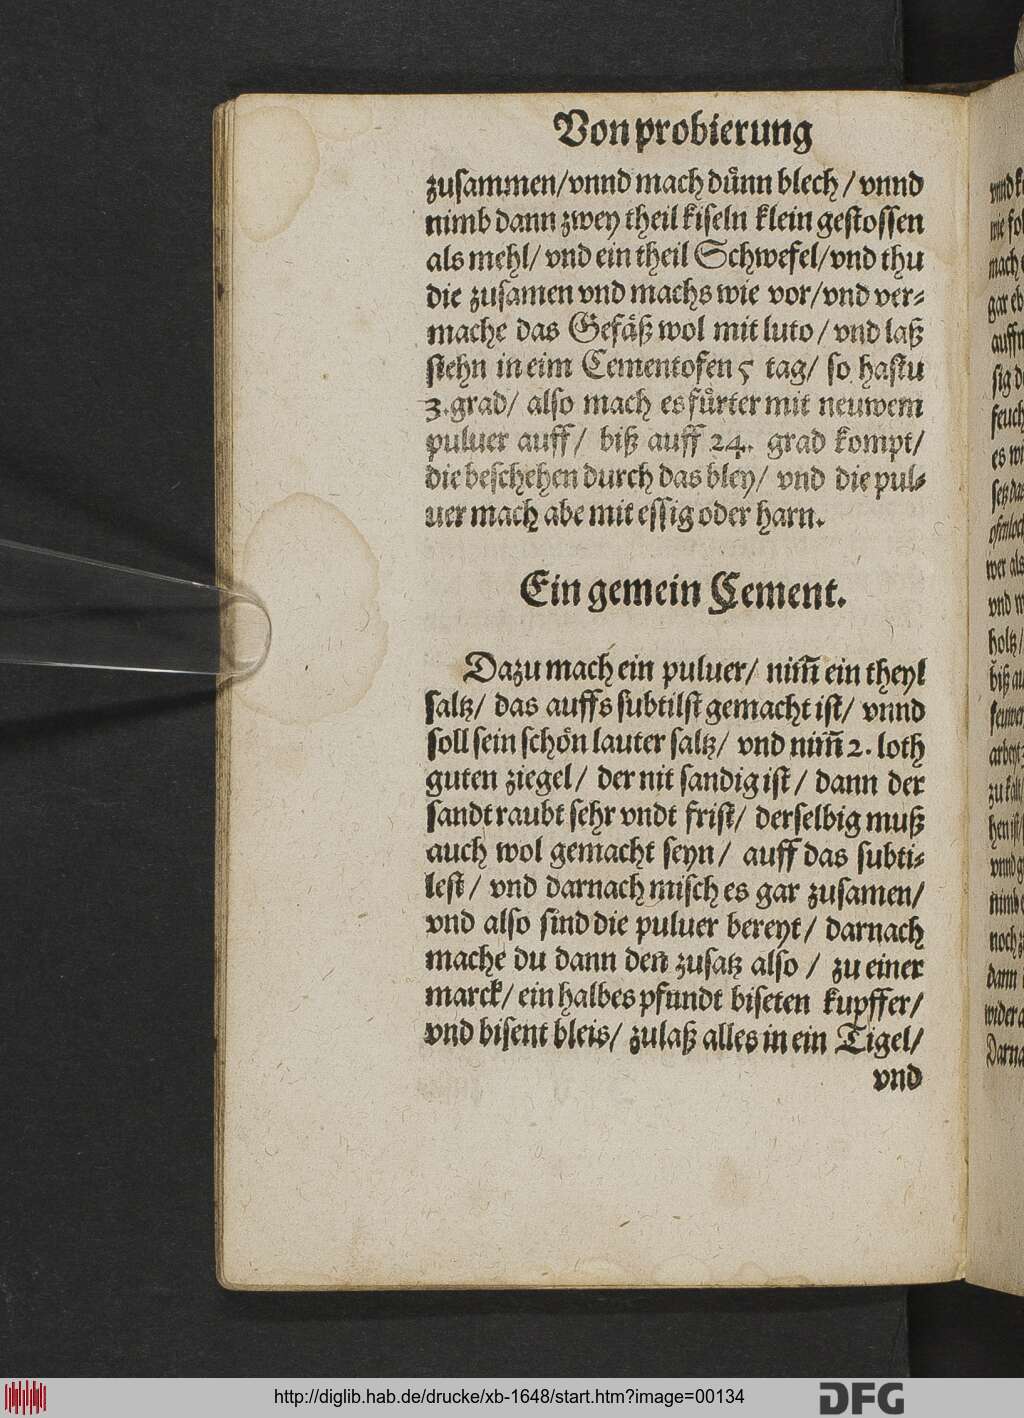 Von probierung
zusammen/ vnnd mach dünn blech/ vnnd
nimb dann zwey theil kiseln klein gestossen
als mehl/ vnd ein theil Schwefel/ vnd thu
die zusamen vnd machs wie vor/ vnd ver-
mache das Gefäß wol mit luto/ vnd laß
stehn in eim Cementofen 5 tag/ so hastu
3. grad/ also mach es fürter mit neuwem
puluer auff/ biß auff 24. grad kompt/
die beschehen durch das bley/ vnd die pul-
uer mach abe mit essig oder harn.
Ein gemein Cement.
Dazu mach ein puluer/ nim̃ ein theyl
saltz/ das auffs subtilst gemacht ist/ vnnd
soll sein schön lauter saltz/ vnd nim̃ 2. loth
guten ziegel/ der nit sandig ist/ dann der
sandt raubt sehr vndt frist/ derselbig muß
auch wol gemacht seyn/ auff das subti-
lest/ vnd darnach misch es gar zusamen/
vnd also sind die puluer bereyt/ darnach
mache du dann den zusatz also/ zu einer
marck/ ein halbes pfundt biseten kupffer/
vnd bisent bleis/ zulaß alles in ein Tigel/
vnd
http://diglib.hab.de/drucke/xb-1648/start.htm?image=00134
DFG